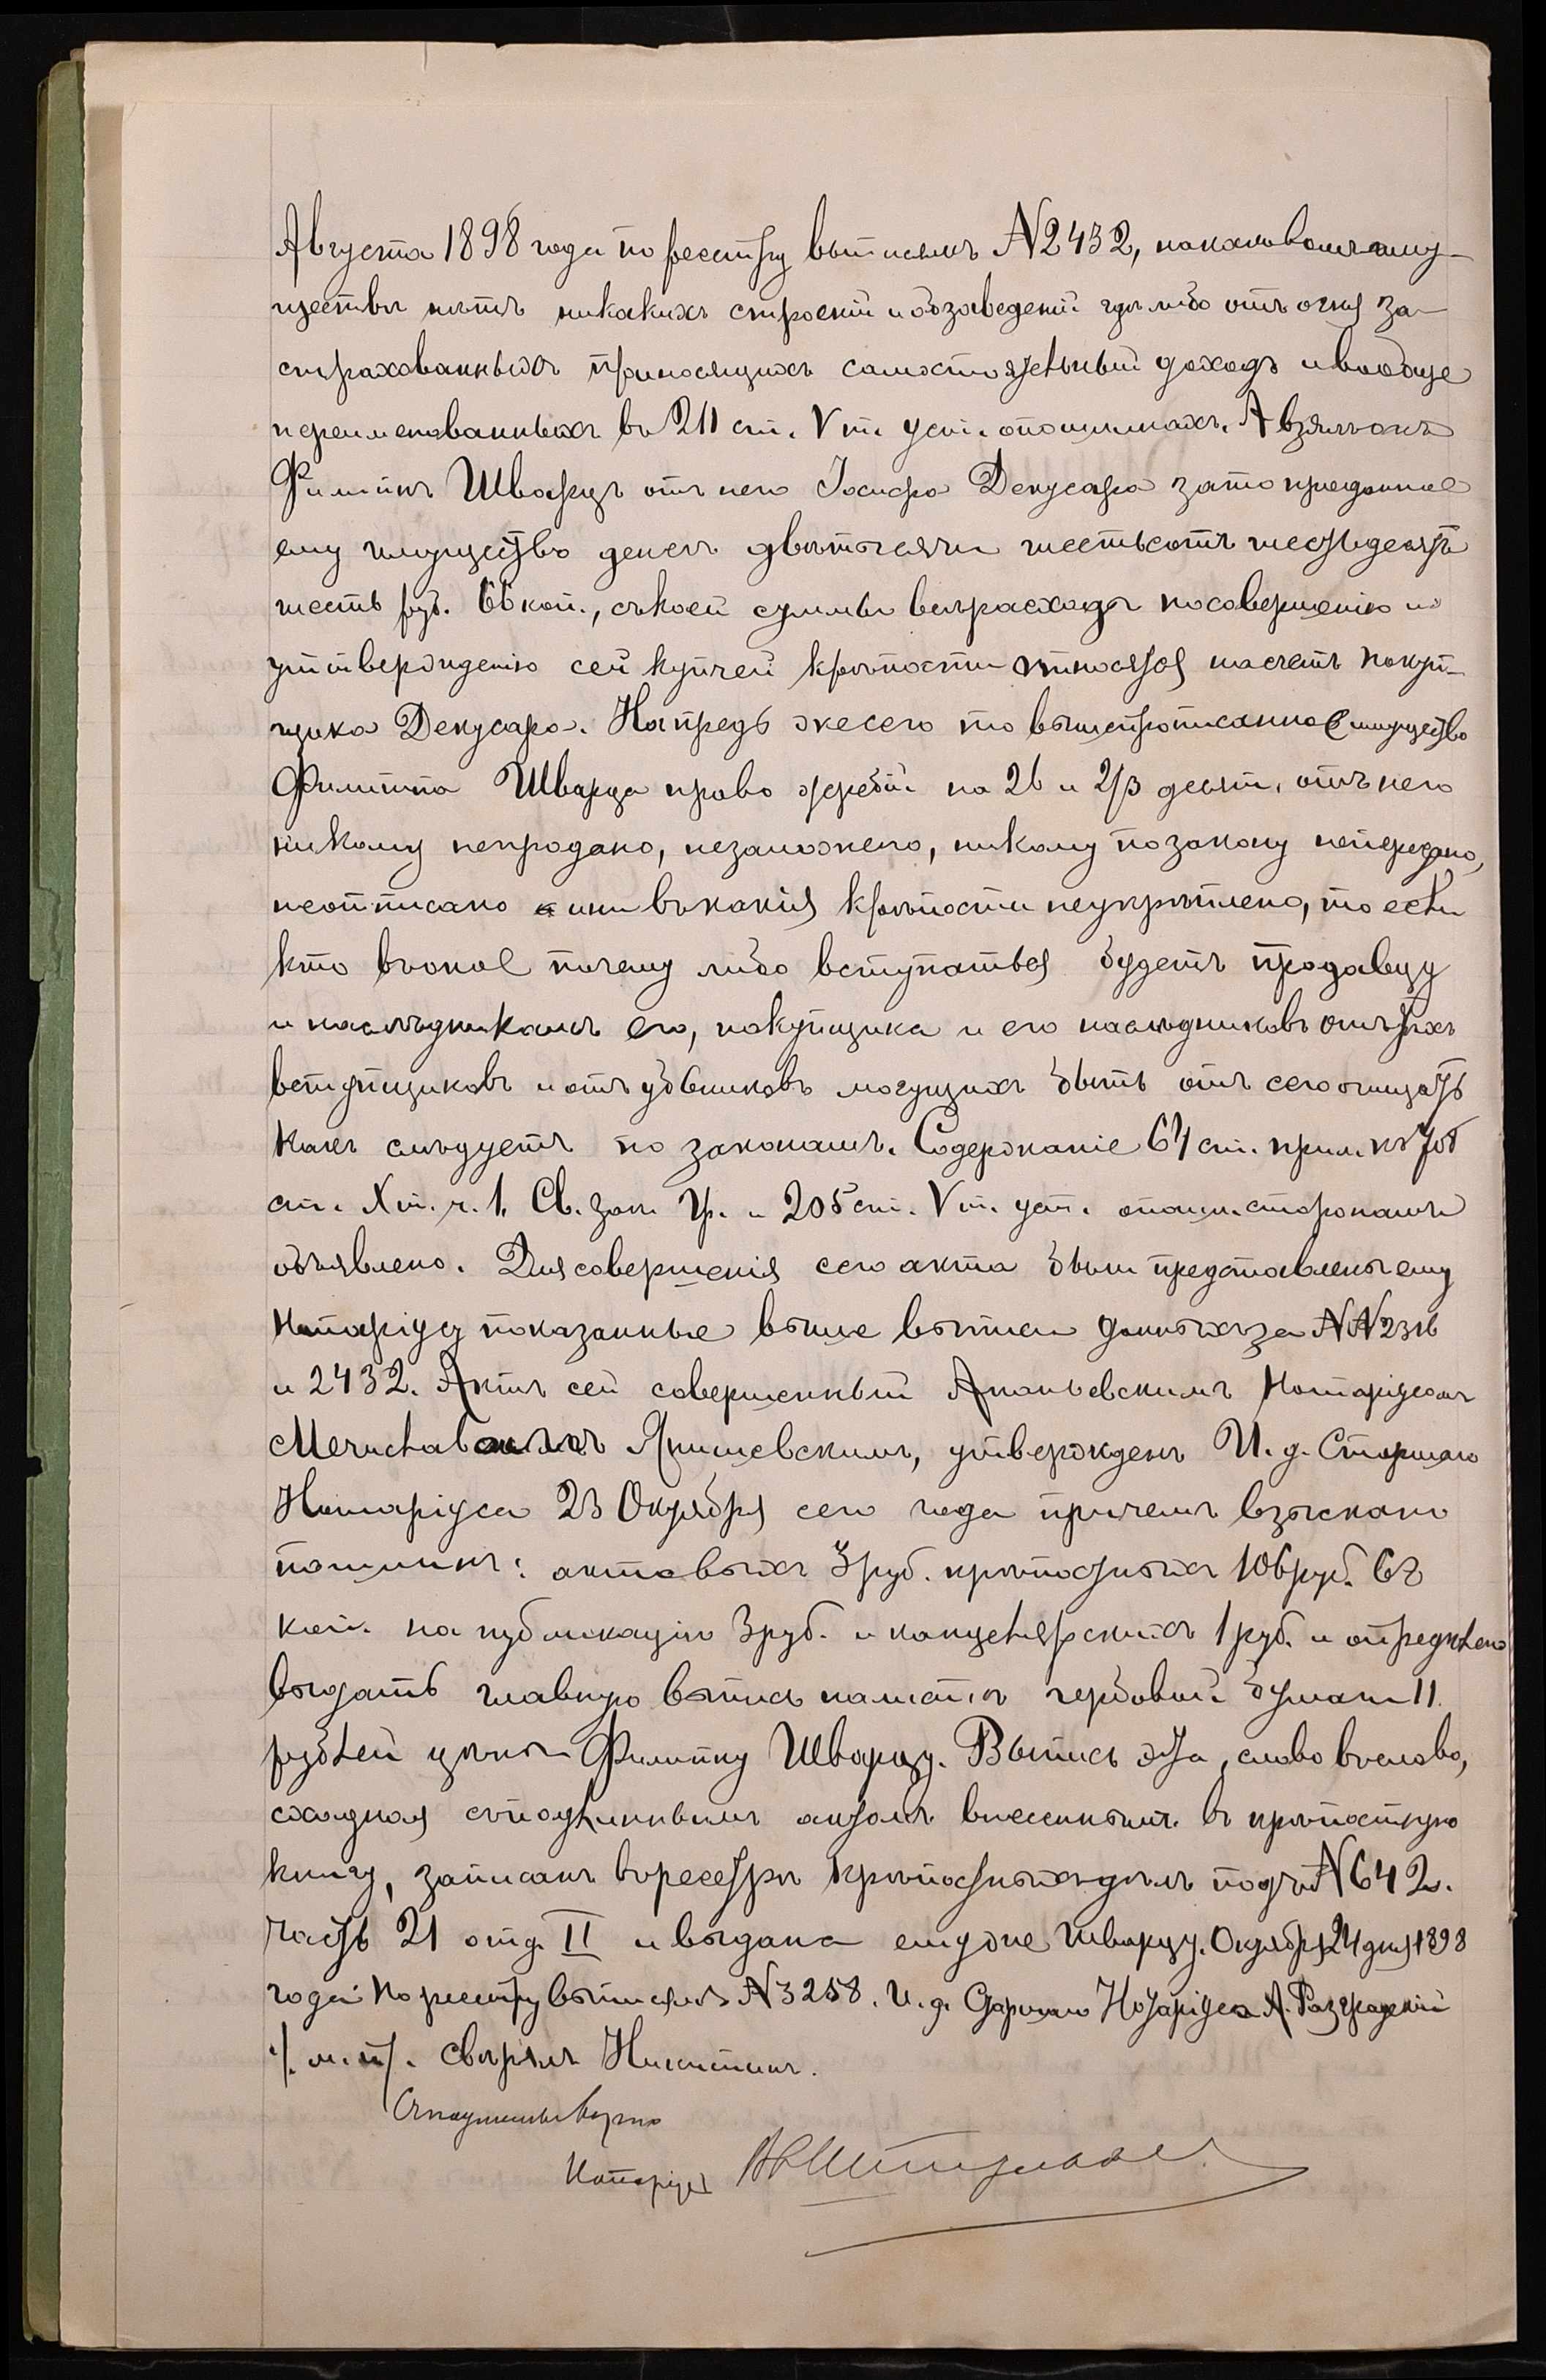 Августа 1898 года по реестру выписямъ №2432, на каковомъ иму-
ществѣ нѣтъ никакихъ строеній и обзаведеній гдѣ либо отъ огня за-
страхованныхъ приносящихъ самостоятельный доходъ и вообще
переименованныхъ въ 211 ст. V т. уст. о пошлинахъ. А взялъ онъ
Филиппъ Шварцъ отъ него Іосифа Декусара за то проданное
ему имущество денегъ двѣ тысячи шестьсотъ шестьдесятъ
шесть руб. 66 коп., съ коей суммы всѣ расходы по совершенію и
утвержденію сей купчей крѣпости относятся на счетъ покуп-
щика Декусара. Напредь же сего то вышепрописанное имущество
Филиппа Шварца право жеребій на 26 и 2/3 десят. отъ него
никому не продано, не заложено, никому по закону не передано,
не отписано и ни въ какія крѣпости не укрѣплено, то если
кто въ оное почему либо вступаться будетъ продавцу
и наслѣдникамъ его, покупщика и его наслѣдниковъ отъ тѣхъ
вступщиковъ и отъ убытковъ могущихъ быть отъ сего очищать
какъ слѣдуетъ по законамъ. Содержаніе 64 ст. прил. къ 708
ст. X т. ч. 1. Св. зак. Гр. и 205 ст. V т. уст. о пошл. сторонамъ
объявлено. Для совершенія сего акта были представлены ему
Нотаріусу показанные выше выписи данныхъ за №№ 2316
и 2432. Актъ сей совершенный Ананьевскимъ Нотаріусомъ
Мечиславомъ Янишевскимъ, утвержденъ И. д. Старшаго
Нотаріуса 23 Октября сего года причемъ взыскано
пошлинъ: актовыхъ 3 руб. крѣпостныхъ 106 руб. 68
коп. на публикацію 3 руб. и канцелярскихъ 1 руб. и опредѣлено
выдать главную выпись на листѣ гербовой бумаги 11
рублей цѣны Филиппу Шварцу. Выпись эта, слово въ слово,
сходная съ подлиннымъ актомъ внесеннымъ въ крѣпостную
книгу, записанъ въ реестръ крѣпостныхъ дѣлъ подъ №642.
часть 21 отд. II и выдана ему же Шварцу. Октября 24 дня 1898
года по реестру выписямъ №3258. И. д. Старшаго Нотаріуса А. Разградскій
/. м. п/. свѣрялъ Никитинъ.
Съ подлиннымъ вѣрно
Нотаріусъ